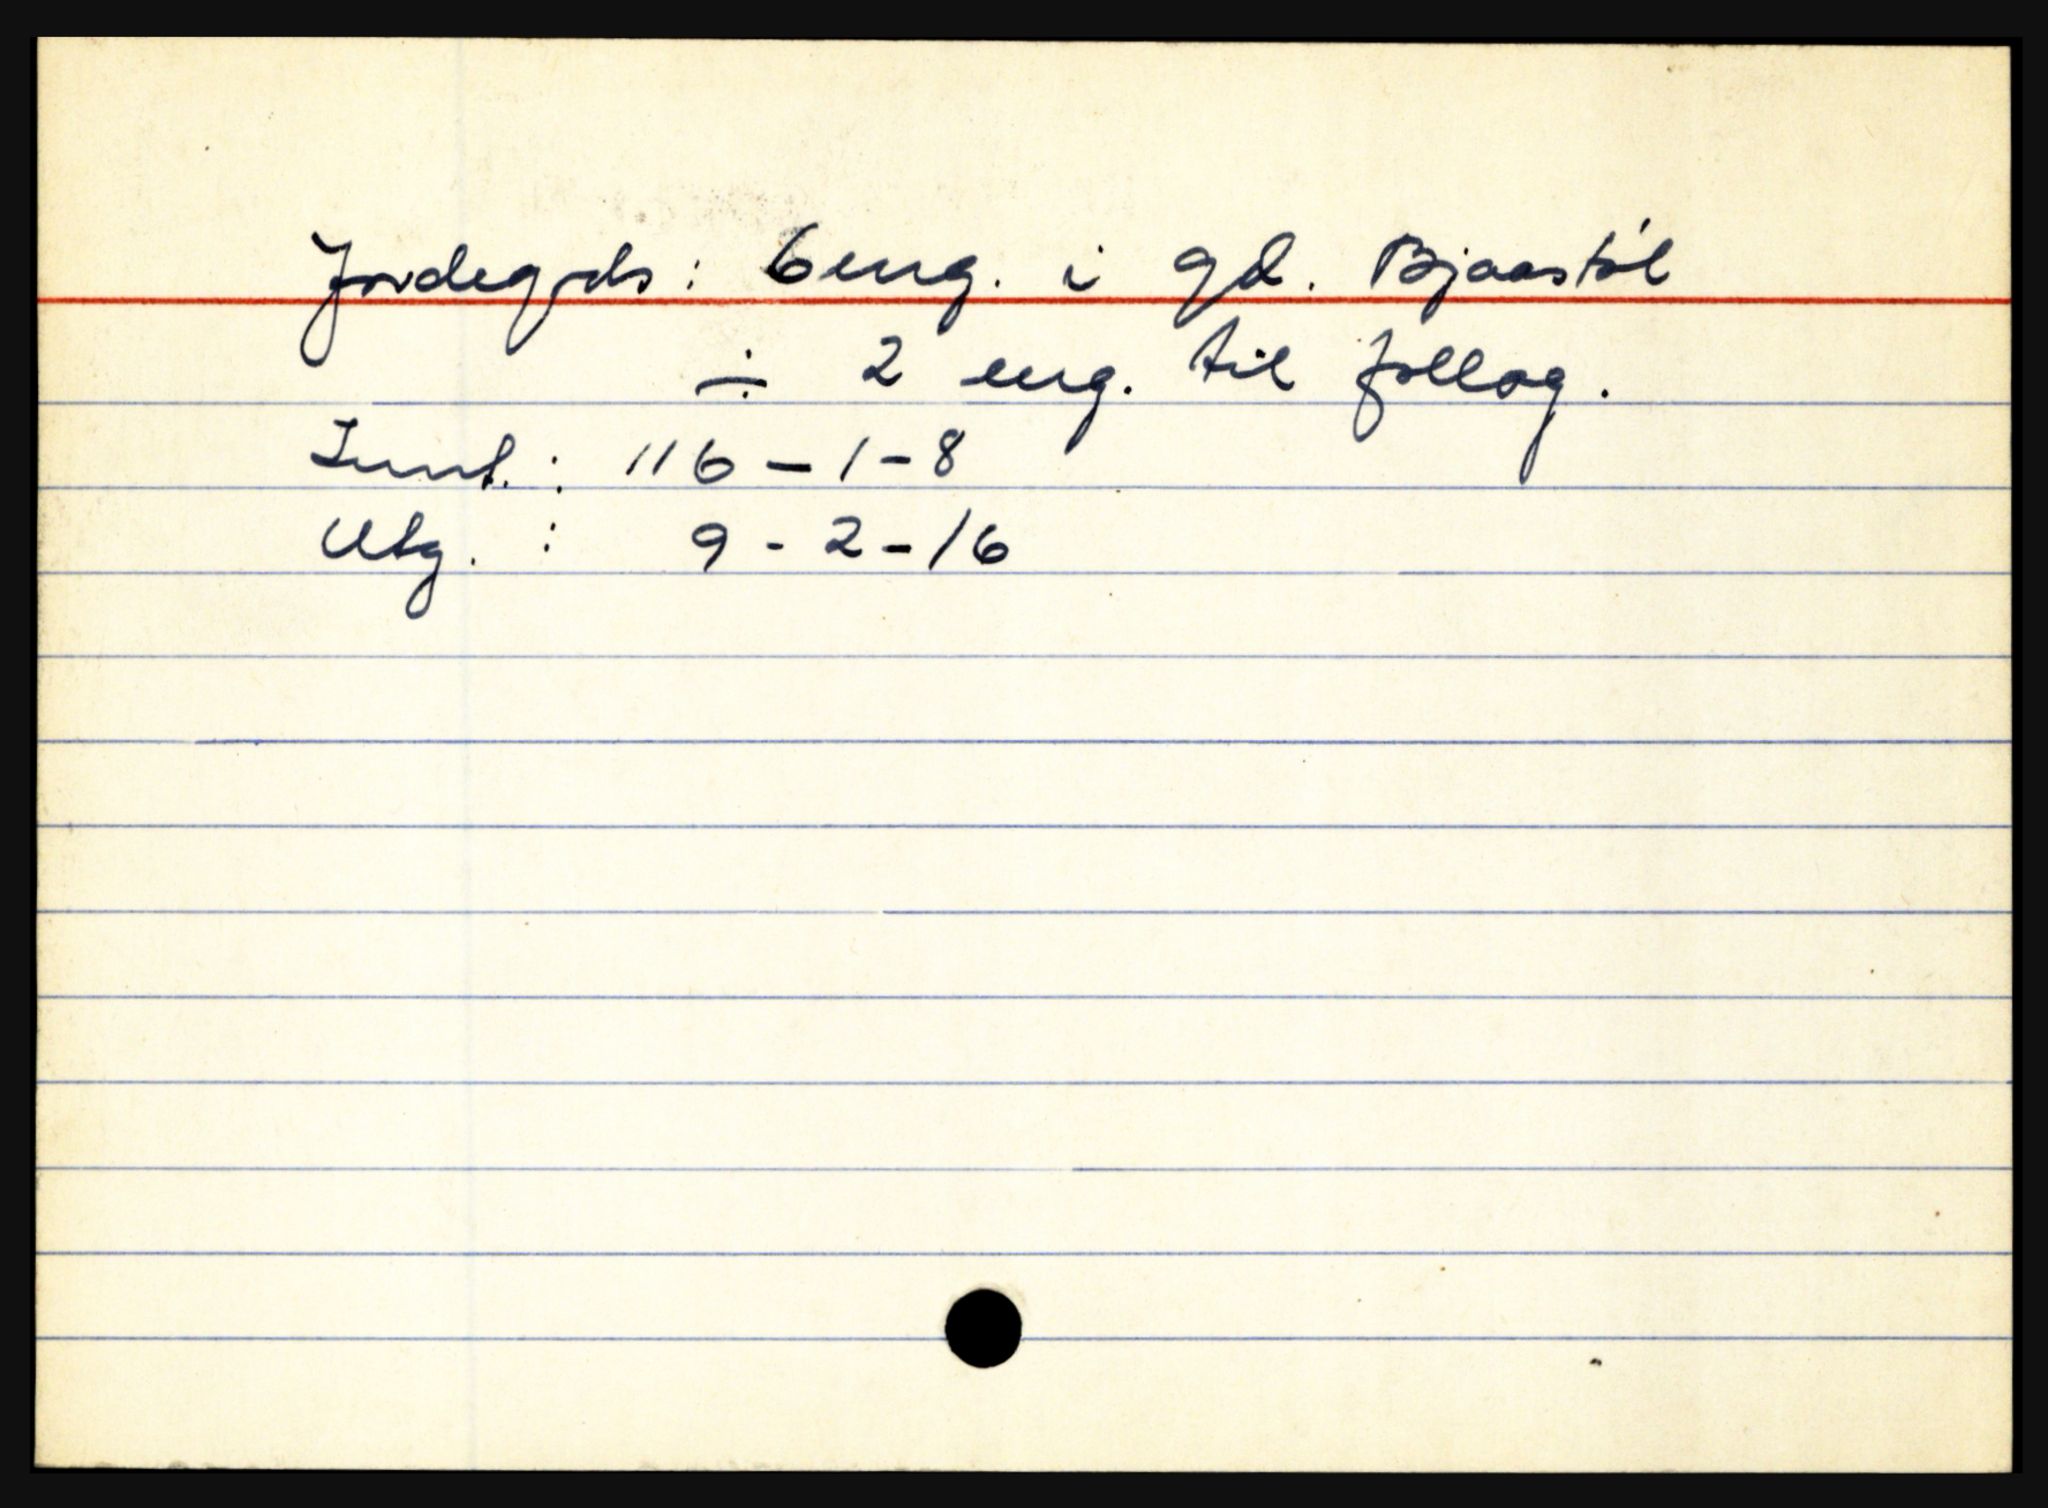 Jordegods: 6 eng. i gd. Bjaastøl
÷ 2 eng. til follog.
Innt. : 116 - 1 - 8
Utg. : 9 - 2 - 16